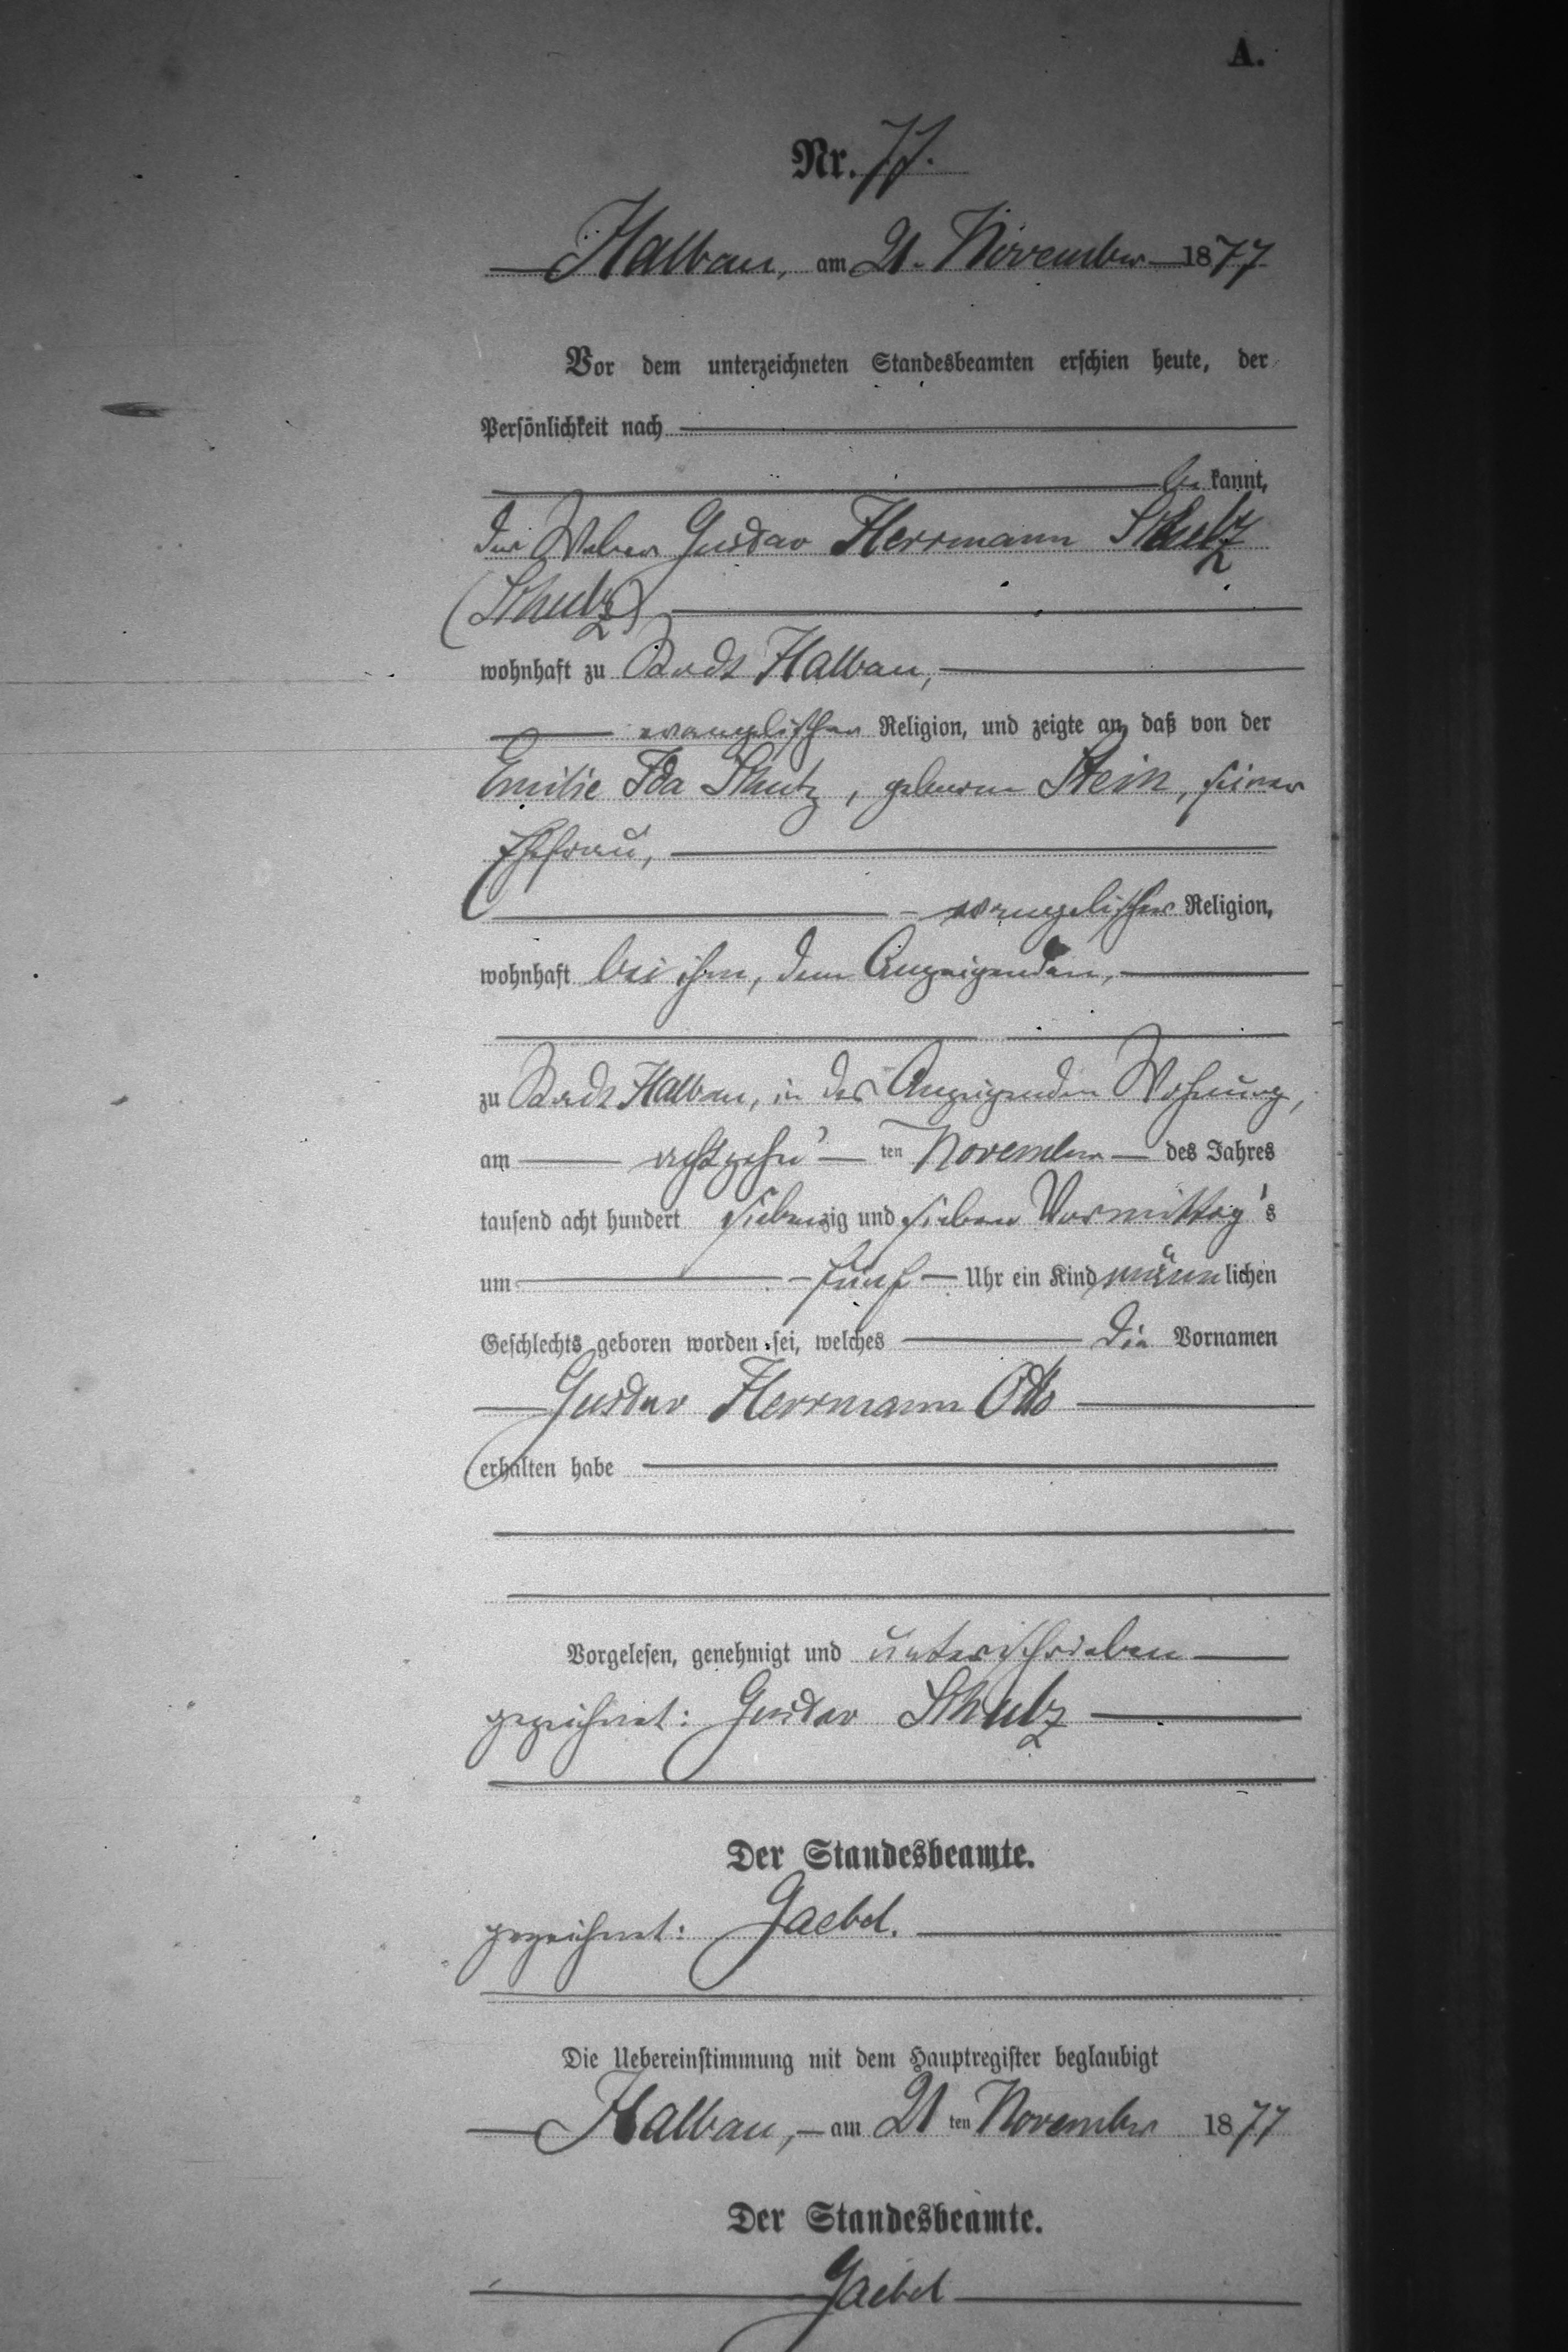 A.
Nr. 77.
Halbau, am 21. November 1877
Vor dem unterzeichneten Standesbeamten erschien heute, der
Persönlichkeit nach
be kannt,
der Weber Gustav Herrmann Schulz
(Schulz)
wohnhaft zu Stadt Halbau,
evangelischer Religion, und zeigte an, daß von der
Emilie Ida Schulz, geborene Stein, seiner
Ehefrau,
evangelischer Religion,
wohnhaft bei ihm, dem Anzeigenden,
zu Stadt Halbau, in des Anzeigenden Wohnung,
am achtzehn ten November des Jahres
tausend acht hundert siebenzig und sieben Vormittags
um fünf Uhr ein Kind männlichen
Geschlechts geboren worden sei, welches die Vornamen
Gustav Herrmann Otto
erhalten habe
Vorgelesen, genehmigt und unterschrieben
gezeichnet: Gustav Schulz
Der Standesbeamte.
gezeichnet: Gaebel.
Die Uebereinstimmung mit dem Hauptregister beglaubigt
Halbau, am 21 ten November 1877
Der Standesbeamte.
Gaebel